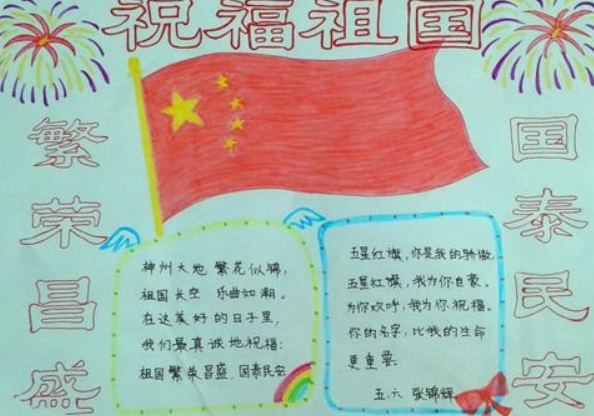 祝福祖国
繁荣昌盛
神州大地 繁花似锦,
祖国长空 乐曲如潮。
在这美好的日子里,
我们最真诚地祝福:
祖国繁荣昌盛,国泰民安
五星红旗,你是我的骄傲
五星红旗,我为你自豪。
为你欢呼,我为你祝福。
你的名字,比我的生命
更重要
五.六 张锦辉
国泰民安